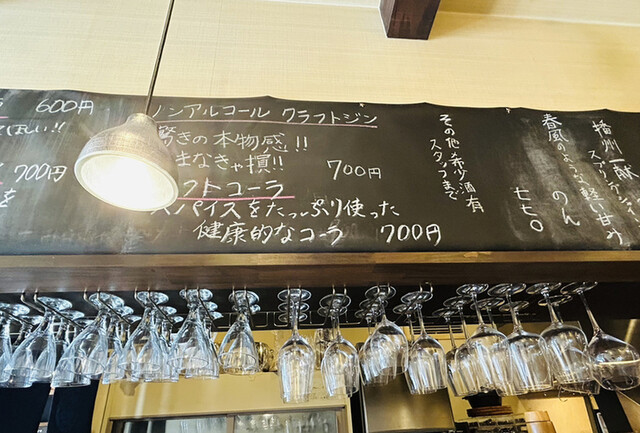 600円
ほしい!!
700円
を
ノンアルコール クラフトジン
驚きの本物感!!
まなきゃ損!!
700円
フトコーラ
スパイスをたっぷり使った
健康的なコーラ 700円
その他・希少酒有
スタッフまで
播州一献
春風のような軽い甘み
のん
七七〇